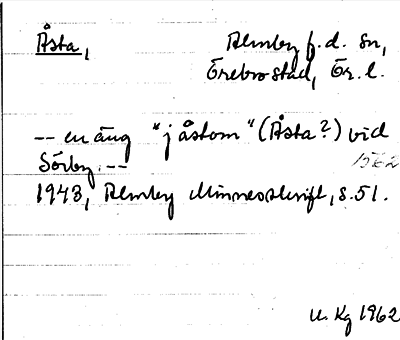 Åsta,
Almby f.d. sn,
Örebro stad, Ör. l.
-- en äng "j åstom" (Åsta?) vid
Sörby. --
1562
1943, Almby Minnesskrift, s. 51.
U. Kg 1962